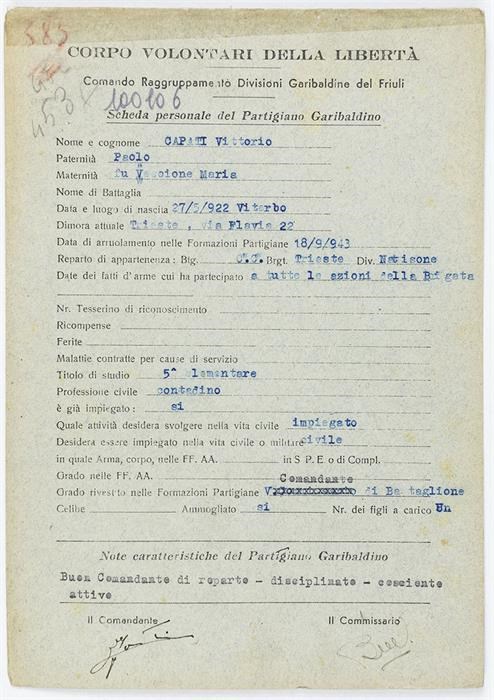 583
CORPO VOLONTARI DELLA LIBERTÀ
Comando Raggruppamento Divisioni Garibaldine del Friuli
100106
Scheda personale del Partigiano Garibaldino
Nome e cognome CAPATI Vittorio
Paternità Paolo
Maternità fu Maria
Nome di Battaglia
Data e luogo di nascita 27/5/922 Viterbo
Dimora attuale Trieste , via Flavia 22
Data di arruolamento nelle Formazioni Partigiane 18/9/943
Reparto di appartenenza: Btg. C.C. Brgt. Trieste Div. Natisone
Date dei fatti d'arme cui ha partecipato a tutte le azioni della Brigata
Nr. Tesserino di riconoscimento
Ricompense
Ferite
Malattie contratte per cause di servizio
Titolo di studio 5^ elementare
Professione civile contadino
è già impiegato: si
Quale attività desidera svolgere nella vita civile impiegato
Desidera essere impiegato nella vita civile o militare civile
in quale Arma, corpo, nelle FF. AA. in S P E o di Compl.
Grado nelle FF. AA. Comandante
Grado rivestito nelle Formazioni Partigiane di Battaglione
Celibe Ammogliato si Nr. dei figli a carico Un
Note caratteristiche del Partigiano Garibaldino
Buon Comandante di reparto - disciplinato - cosciente
attivo
Il Comandante Il Commissario